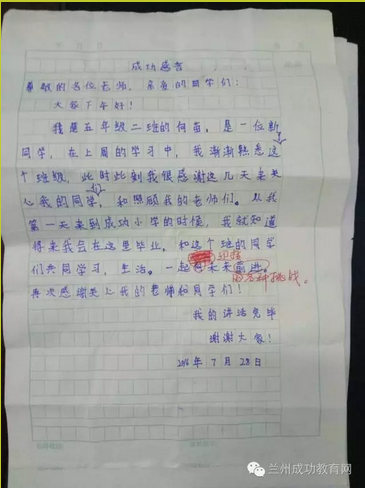 成功感言
尊敬的各位老师，亲爱的同学们：
大家下午好！
我是五年级二班的何苗，是一位新
同学，在上周的学习中，我渐渐熟悉这
个班级，此时此刻我很感谢这几天来关
心我的同学，和照顾我的老师们。从我
第一天来到成功小学的时候，我就知道
将来我会在这里毕业，和这个班的同学
迎接
们共同学习，生活。一起 未来前进。
的各种挑战。
再次感谢关心我的老师和同学们！
我的讲话完毕
谢谢大家！
2016年7月28日
兰州成功教育网